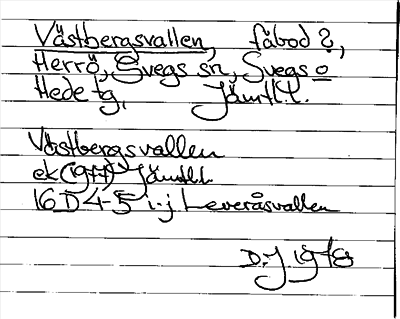 Västbergsvallen, fäbod 2,
Herrö, Svegs sn, Svegs o
Hede tg, Jämtl. l.
Västbergsvallen
ek (1977) Jämtl.l.
16 D 4-5 i-j Leveråsvallen
D.J 1978